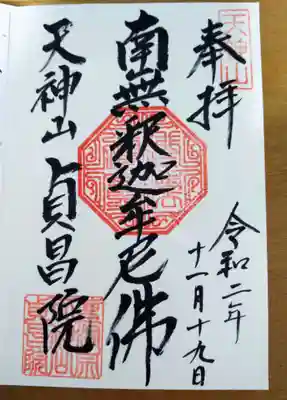 天神山
奉拝
令和二年
十一月十九日
南無釈迦牟尼佛
天神山 貞昌院